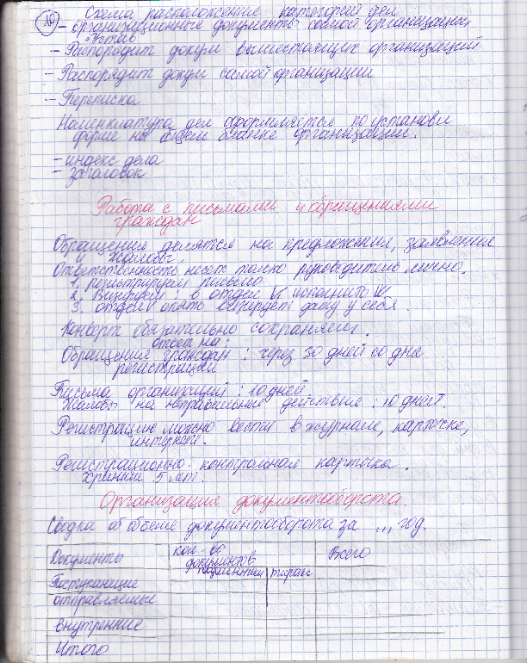 10
Схема расположения категорий дел
- организационные документы самой организации,
Устав
- Распорядит докум вышестоящих организаций
- Распорядит докум самой организации
- Переписка
Номенклатура дел оформляется по установл
форме на общем бланке организации.
- индекс дела
- заголовок
Работа с письмами и обращениями
граждан
Обращения делятся на предложения, заявление
и жалобы.
Ответственность несёт только руководитель лично.
1. регистрируем письмо
2. Визируем в отдел
3. отдел опять визирует дату у себя.
Конверт обязательно сохраняем.
ответ на:
Обращение граждан: через 30 дней со дня
регистрации
Письма организаций: 10 дней
Жалобы на неправильные действия: 10 дней.
Регистрацию можно вести в журнале, карточке,
интернете.
Регистрационно-контрольная карточка.
Храним 5 лет.
Организация документооборота.
Сводка об объёме документооборота за ... год.
Документы
кол-во
документов
Всего
тираж
Поступающие
отправляемые
внутренние
Итого